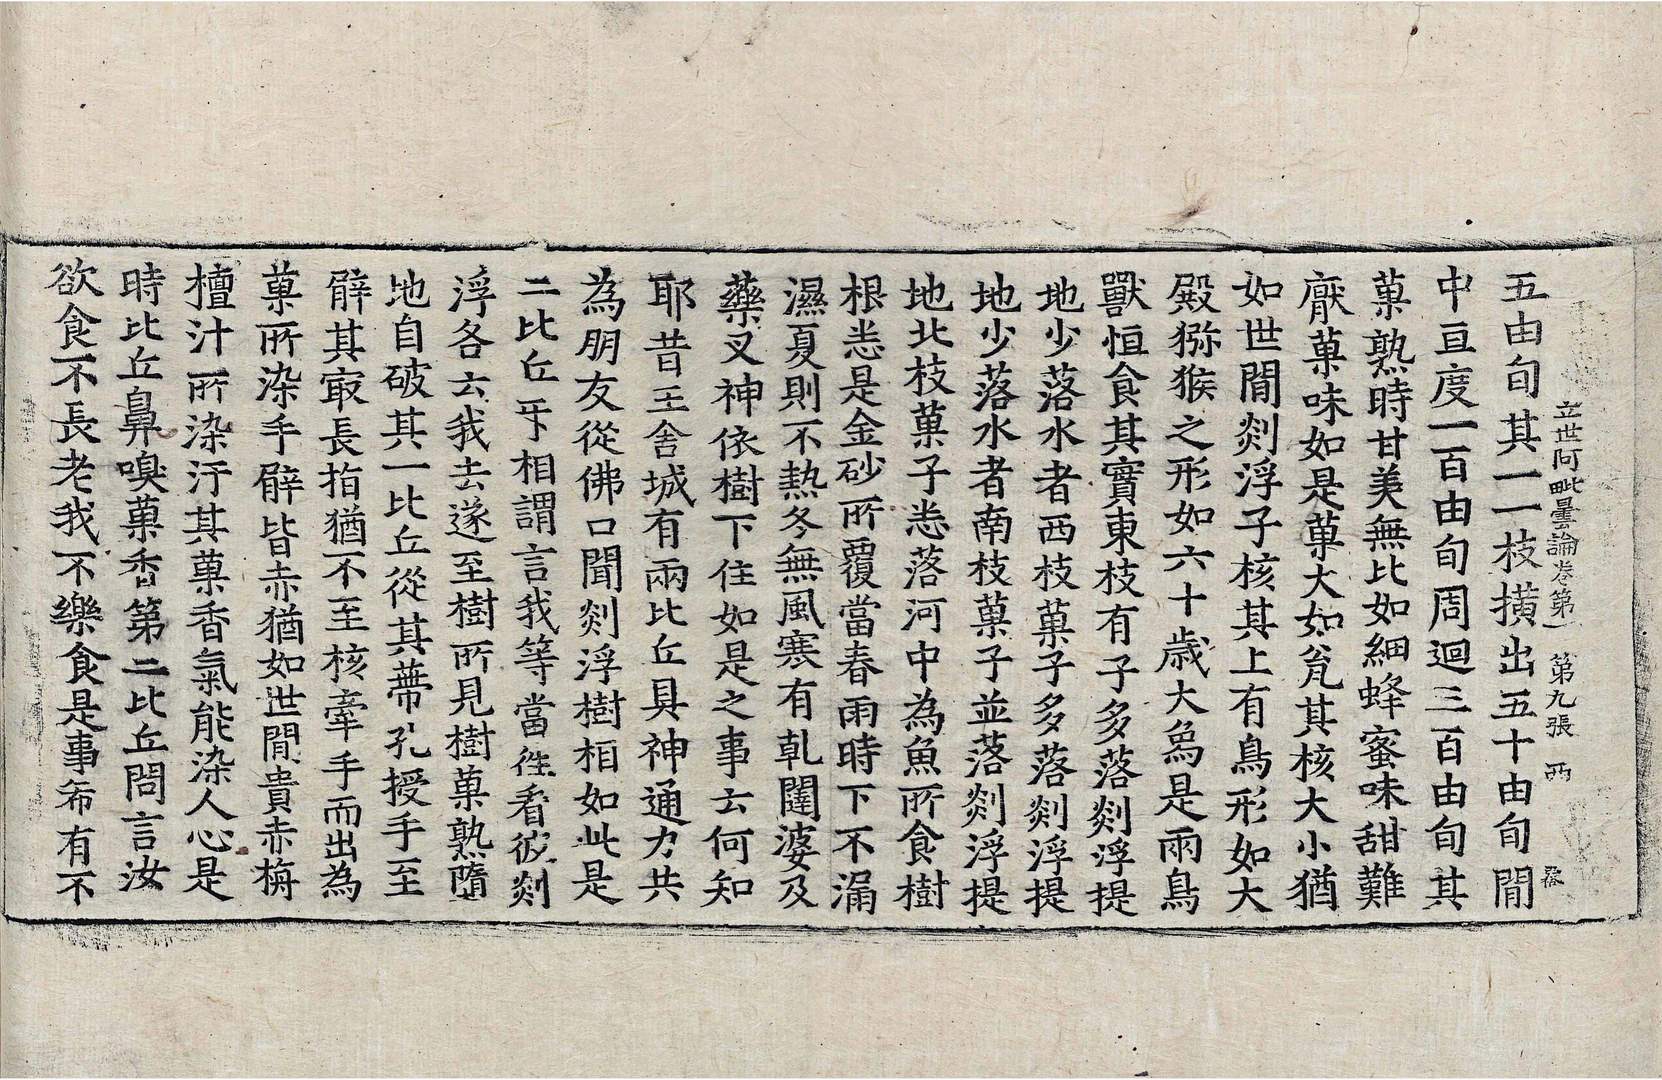 立世阿毗曇論卷第一 第九張 西
五由旬其一一枝撗出五十由旬閒
中亘度一百由旬周迴三百由旬其
菓熟時甘美無比如細蜂蜜味甜難
猒菓味如是菓大如瓮其核大小猶
如世閒剡浮子核其上有鳥形如大
殿猕猴之形如六十歳大象是兩鳥
獸恒食其實東枝有子多落剡浮提
地少落水者西枝菓子多落剡浮提
地少落水者南枝菓子並落剡浮提
地北枝菓子悉落河中為魚所食樹
根悉是金砂所覆當春雨時下不漏
濕夏則不熱冬無風寒有乹闥婆及
藥叉神依樹下住如是之事云何知
耶昔王舍城有兩比丘具神通力共
為朋友從佛口聞剡浮樹相如此是
二比丘㸦相謂言我等當徃看彼剡
浮各云我去遂至樹所見樹菓熟墮
地自破其一比丘從其蔕孔授手至
臂其㝡長指猶不至核牽手而出為
菓所染手臂皆赤猶如世閒貴赤栴
檀汁所染汙其菓香氣能染人心是
時比丘鼻嗅菓香第二比丘問言汝
欲食不長老我不樂食是事希有不